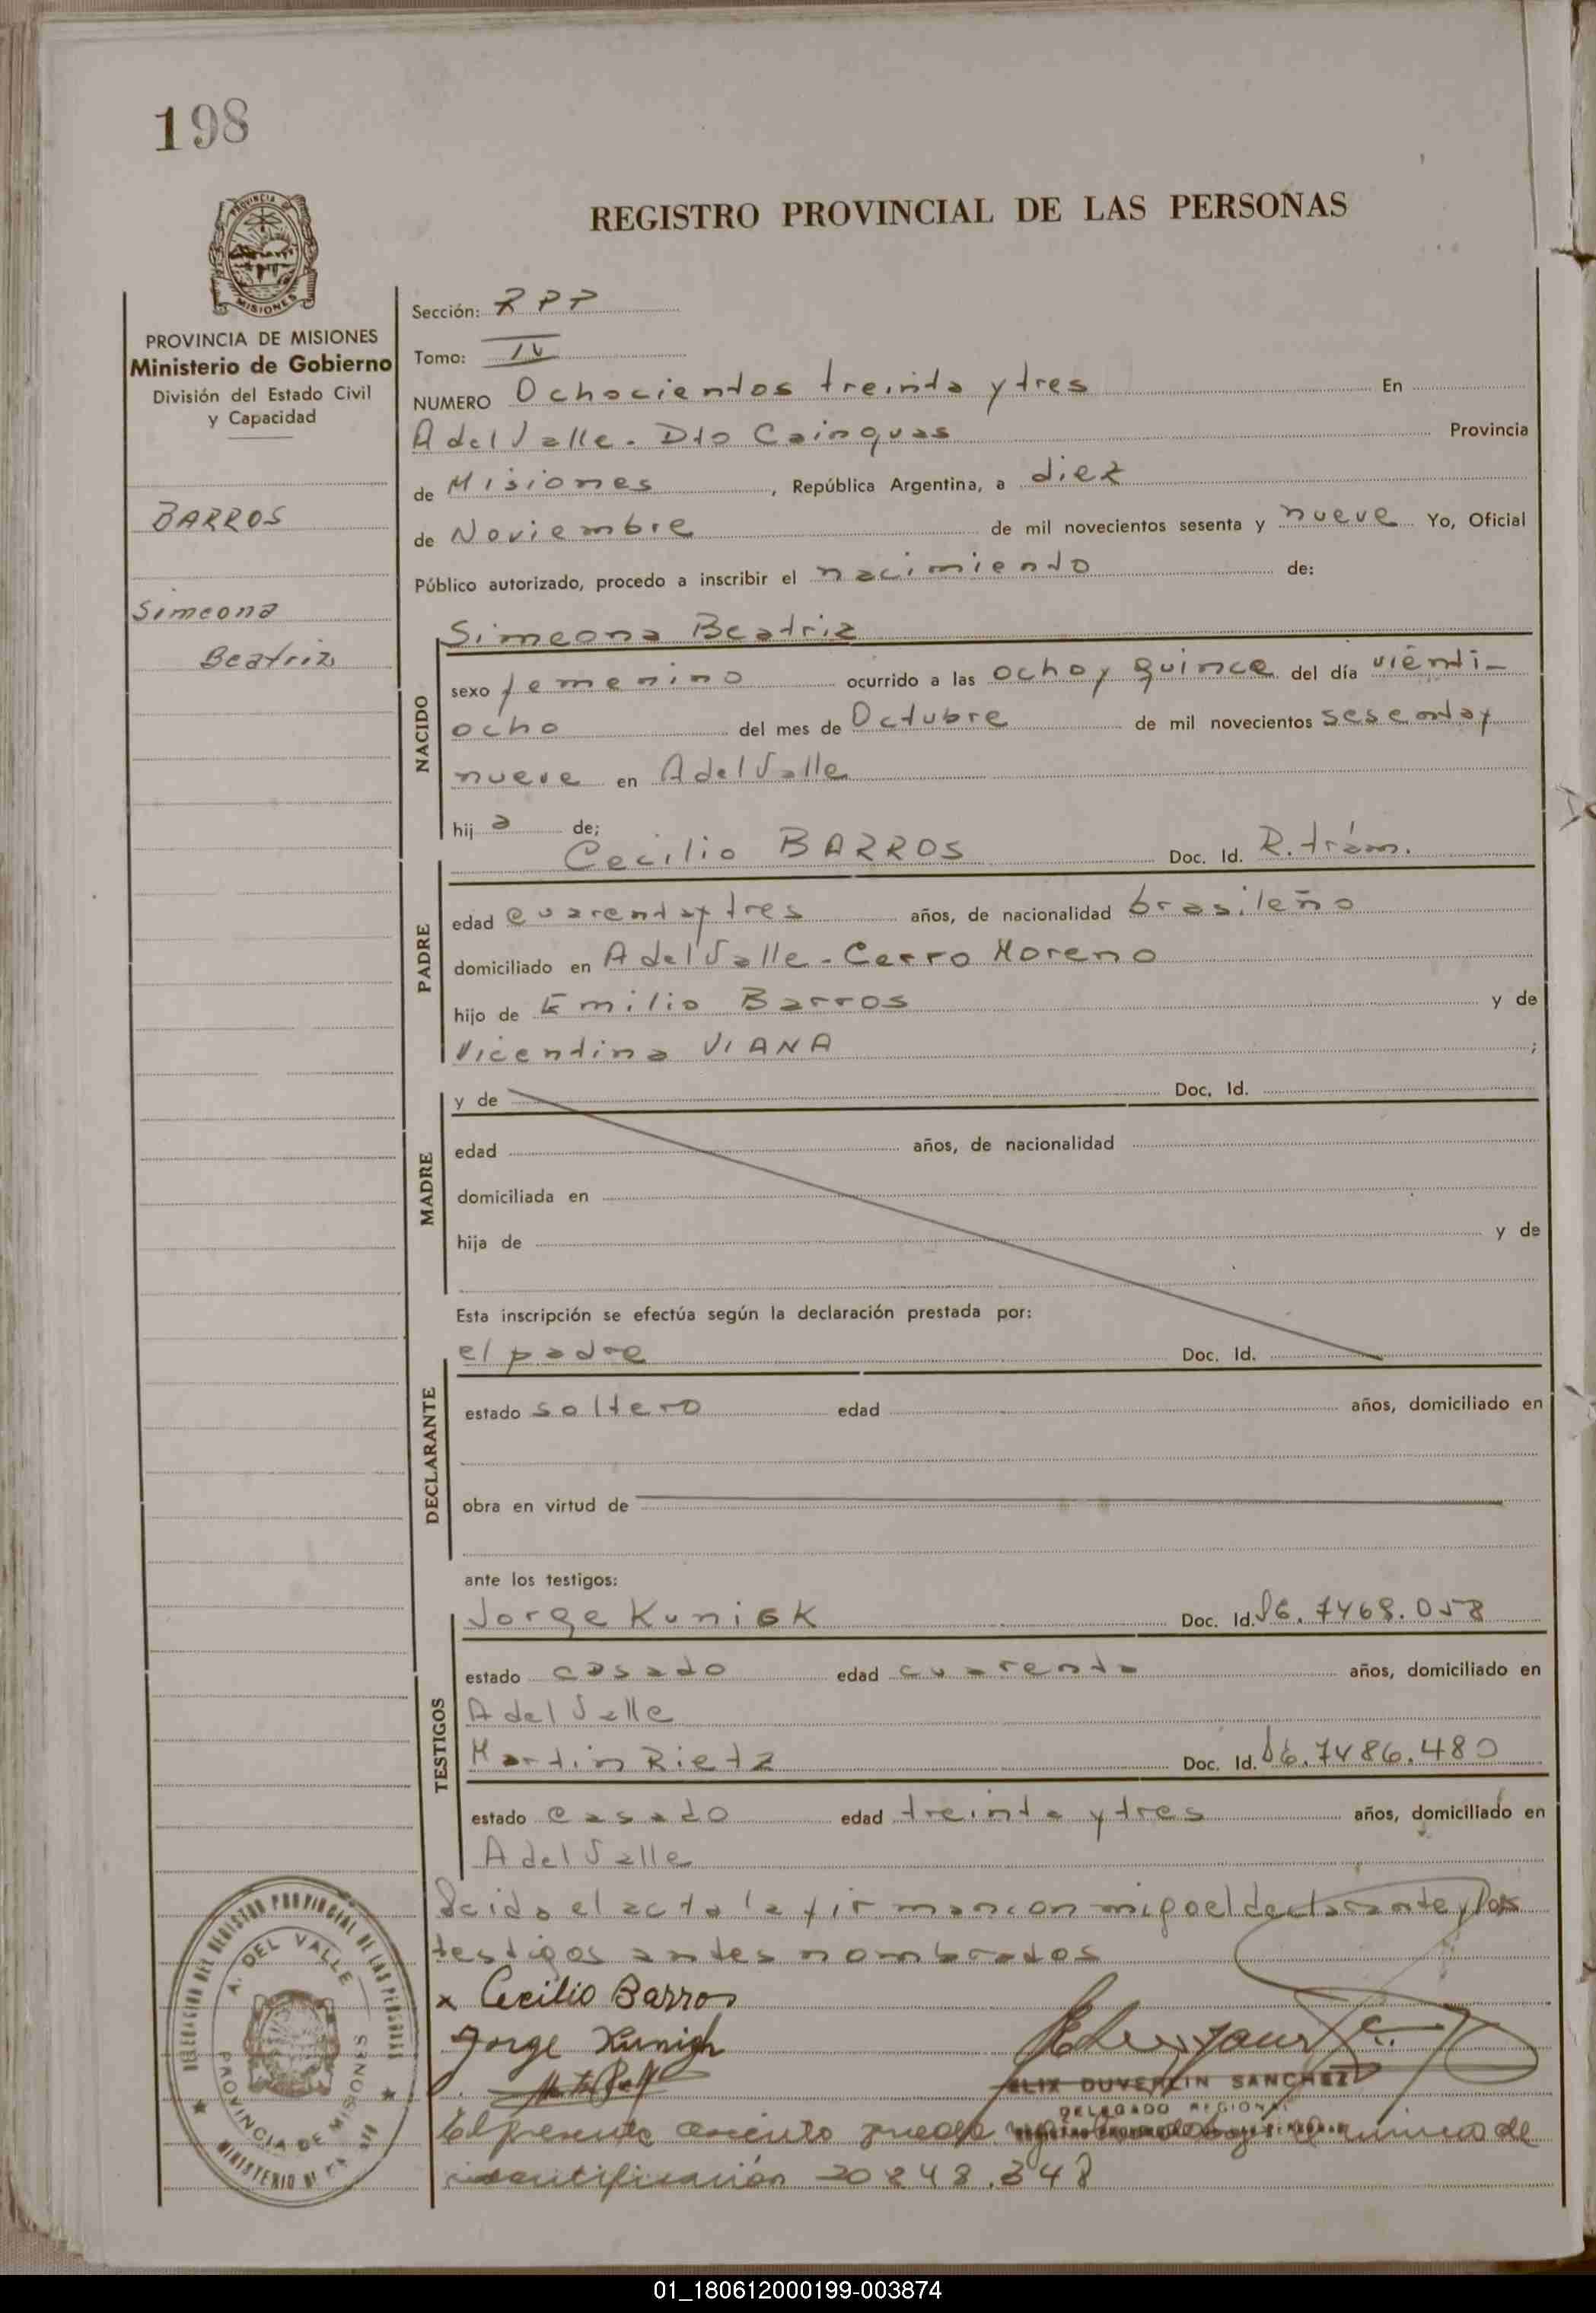 198
REGISTRO PROVINCIAL DE LAS PERSONAS
PROVINCIA DE MISIONES
Ministerio de Gobierno
División del Estado Civil
y Capacidad
BARROS
Simeona
Beatriz
Sección: RPP
Tomo: IV
NUMERO Ochocientos treinta y tres En
A del Valle. Dto Cainguas Provincia
de Misiones, República Argentina, a diez
de Noviembre de mil novecientos sesenta y nueve Yo, Oficial
Público autorizado, procedo a inscribir el nacimiento de:
NACIDO
Simeona Beatriz
sexo femenino ocurrido a las ocho y quince del día vienti-
ocho del mes de Octubre de mil novecientos sesenta y
nueve en A del Valle
hij a de;
PADRE
Cecilio BARROS Doc. Id. R. trám.
edad cuarenta y tres años, de nacionalidad brasileño
domiciliado en A del Valle - Cerro Moreno
hijo de Emilio Barros y de
Vicentina VIANA ;
MADRE
y de Doc. Id.
edad años, de nacionalidad
domiciliada en
hija de y de
Esta inscripción se efectúa según la declaración prestada por:
DECLARANTE
el padre Doc. Id.
estado soltero edad años, domiciliado en
obra en virtud de
ante los testigos:
TESTIGOS
Jorge Kunigk Doc. Id. 7468.058
estado casado edad cuarenta años, domiciliado en
A del Valle
Martin Rietz Doc. Id. 7486.480
estado casado edad treinta y tres años, domiciliado en
A del Valle
Leida el acta la firman con migo el declarante y los
testigos antes nombrados
x Cecilio Barros
Jorge Kunigk
DUVERLIN SANCHEZ
DELEGADO REGIONAL
El presente asiento queda numero de
identificación 20848.348
DELEGACION DEL REGISTRO PROVINCIAL DE LAS PERSONAS
A. DEL VALLE
PROVINCIA DE MISIONES
01_180612000199-003874